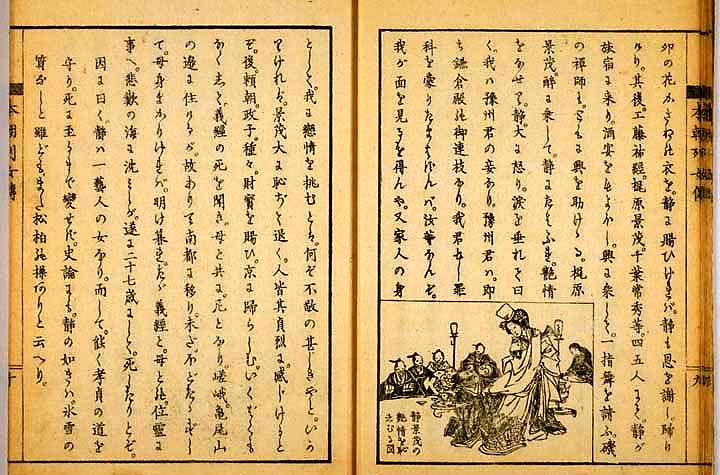 本朝列女傳
卯の花がさねの衣を。静に賜ひければ。静も恩を謝し歸り
けり。其後。工藤祐經。梶原景茂。千葉常秀等。四五人にて。静が
旅宿に来り。酒宴をもよふし。興に乗して。一指舞を請ふ。磯
の禅師も。ともに興を助けゝる。梶原
景茂。醉に乗して。静にたはふれ。艶情
静大に怒り。涙を垂れて曰
く。我ハ豫州君の妾なり。豫州君ハ。即
ち鎌倉殿の御連枝なり。我君もし罪
科を蒙りたまはずんバ。汝等なんぞ。
我が面を見るを得んや。又家人の身
静景茂の
艶情を恥
しむる図
として。我に戀情を挑むとは。何ぞ不敬の甚しきやと。
けれバ。景茂大に恥ぢて退く。人皆其貞烈に感じけりと
ぞ。後。頼朝政子。種々。財寶を賜ひ。京に歸らしむ。いくばくも
なくして。義經の死を聞き。母と共に尼となり。嵯峨。亀尾山
の邊に住けるが。故ありて南都に移り。未だ
て。母身まかりけれバ。明け暮れたゞ義經と。母との。位靈に
事へ。悲歎の海に沈ミしが。遂に二十七歳にして。死したりとぞ。
因に曰く。静ハ一藝人の女なり。而して。能く孝貞の道を
守り。死に至るまで變せず。史論にも。静の如きハ。氷雪の
質なしと雖どもまた松柏の操ありと云へり。
本朝列女傳
十